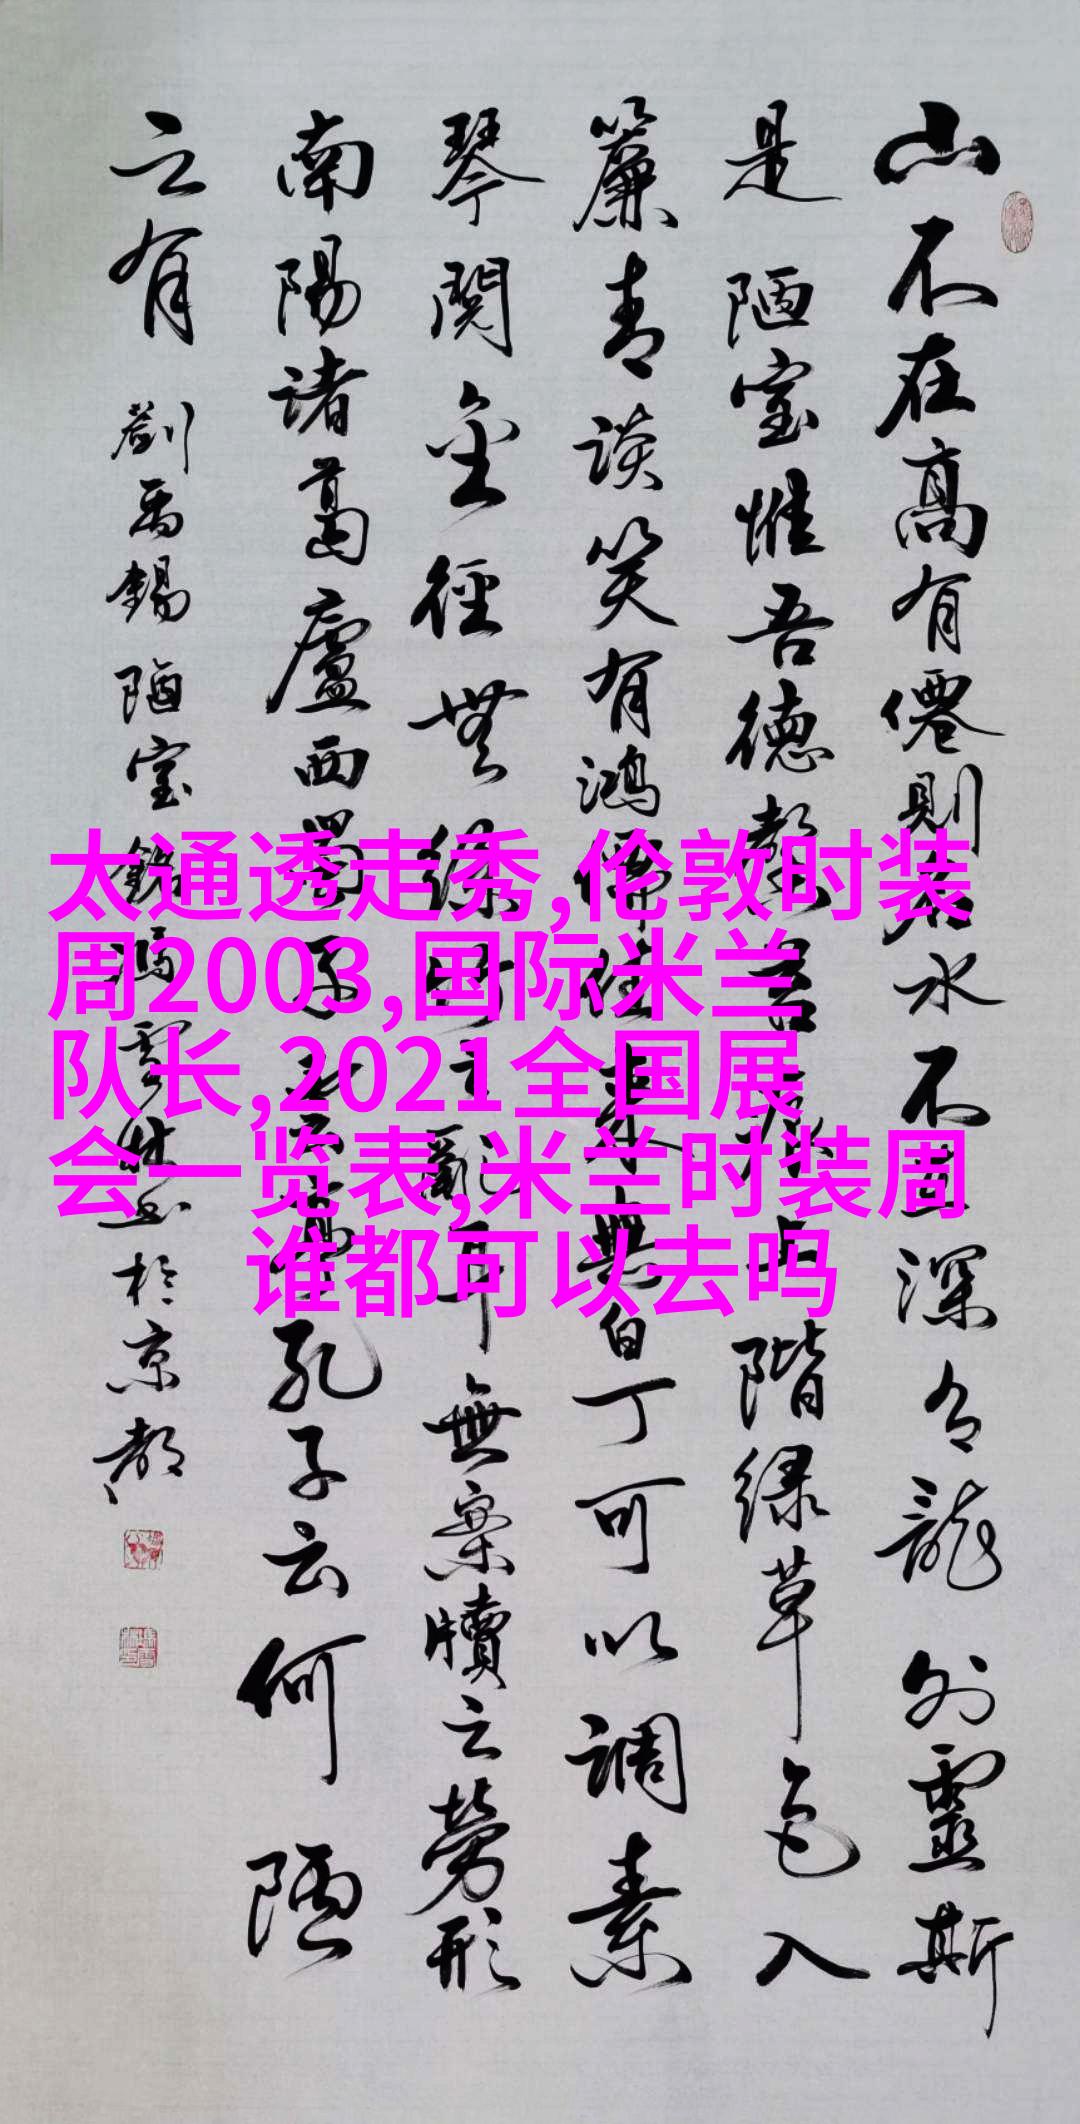 山不在高有僊則名水不在深有龍則靈斯
是陋室惟吾德馨苔痕上階绿草色入
簾青談笑有鴻儒往来無白丁可以調素
琴閱金徑無絲竹之亂耳無案牘之勞形
南陽诸葛廬西蜀子云亭孔子云何陋
之有 劉禹錫陋室銘馮雪林书於京都
太通透走秀,伦敦时装
周2003,国际米兰
队长,2021全国展
会一览表,米兰时装周
谁都可以去吗